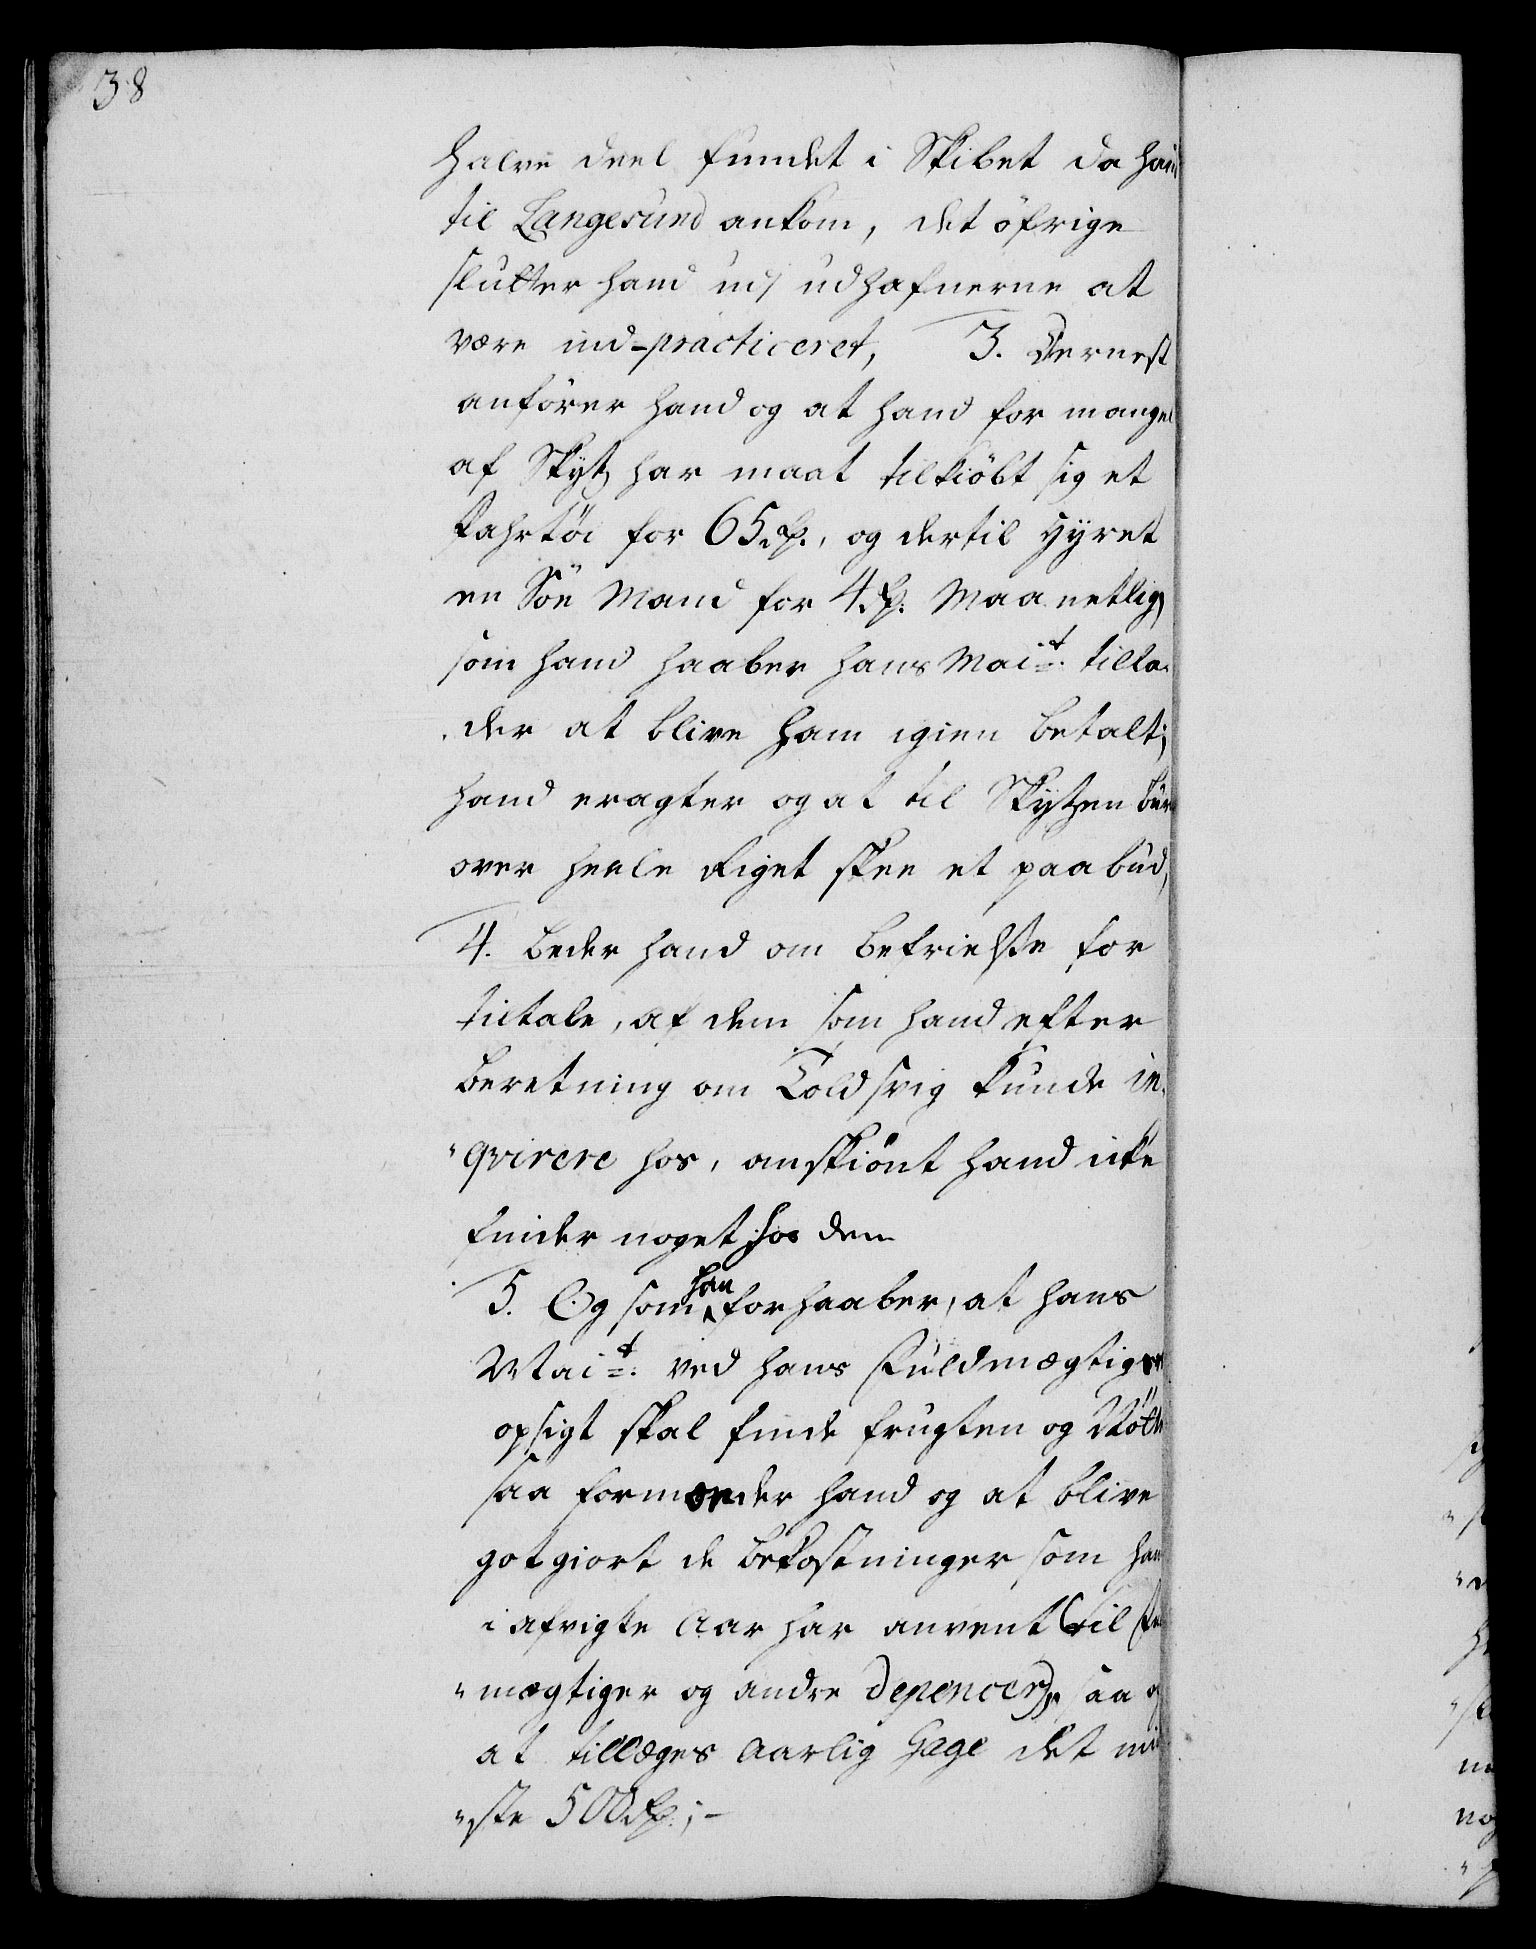 38
halve deel fundet i Skibet da hand
til Langesund ankom, det öfrige
slutter hand udj udhafnerne at
være ind-practiceret, 3. Dernest
anförer hand og at hand for mangel
af Skyts har maat tilkiöbt sig et
Fahrtöi for 65 rd., og dertil hyret
en Söe Mand for 4 rd. Maanetlig,
som hand haaber hans Mait. tilla-
der at blive ham igien betalt;
hand eragter og at til Skytzen bur
over heele Riget skee et paabud,
4. beder hand om befrielse for
tiltale, af dem som hand efter
beretning om Toldsvig kunde in-
qvirere hos, anskiönt hand icke
finder noget hos dem
5. Og som han forhaaber, at hans
Mait. ved hans Fuldmægtigers
opsigt skal finde frugten og Nötte
saa formeender hand og at blive
gotgiort de bekostninger som hand
i afvigte Aar har anvent (til Ful
mægtiger og andre Depencer), saa og
at tillægges Aarlig Gage det min
ste 500 rd.;-